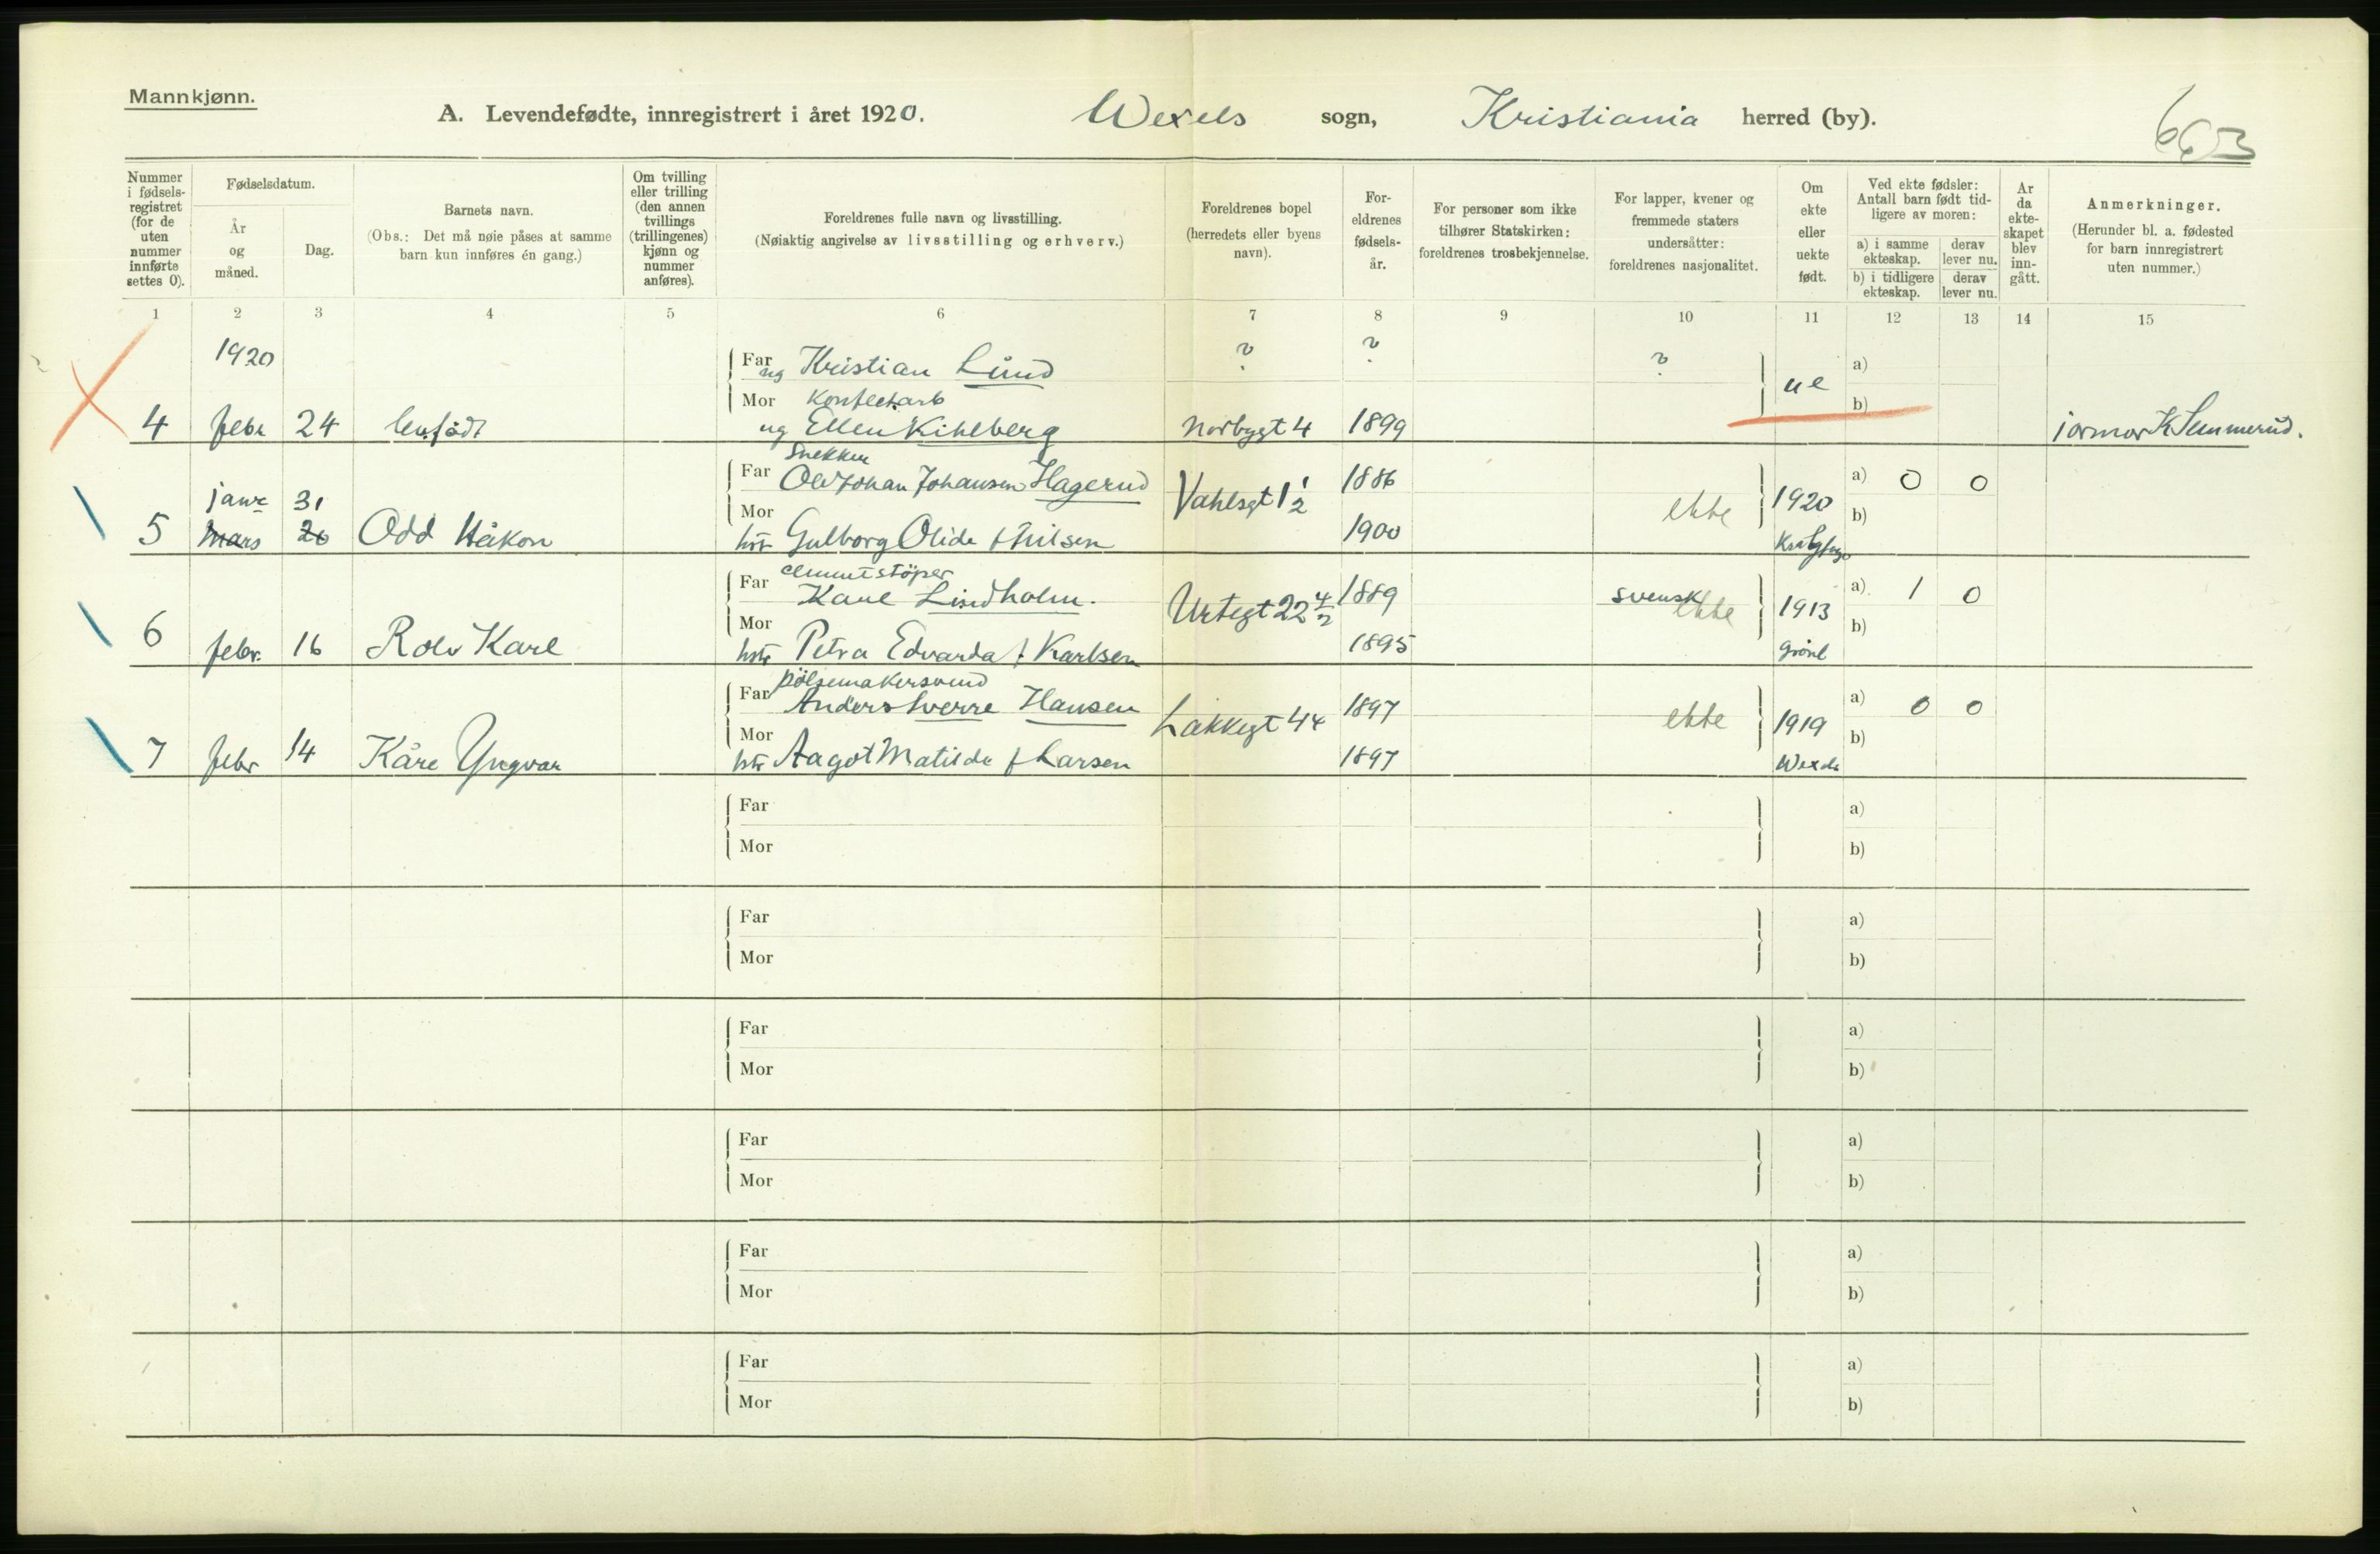 Mannkjønn.
A. Levendefødte, innregistrert i året 1920. Wexels sogn, Kristiania herred (by).
663
Nummer i fødselsregistret (for de uten nummer innførte settes 0).
Fødselsdatum.
År og måned.
Dag.
Barnets navn.
(Obs.: Det må nøie påses at samme barn kun innføres én gang.)
Om tvilling eller trilling (den annen tvillings (trillingenes) kjønn og nummer anføres).
Foreldrenes fulle navn og livsstilling.
(Nøiaktig angivelse av livsstilling og erhverv.)
Foreldrenes bopel (herredets eller byens navn).
Foreldrenes fødselsår.
For personer som ikke tilhører Statskirken: foreldrenes trosbekjennelse.
For lapper, kvener og fremmede staters undersåtter: foreldrenes nasjonalitet.
Om ekte eller uekte født.
Ved ekte fødsler: Antall barn født tidligere av moren:
a) i samme ekteskap. derav lever nu.
b) i tidligere ekteskap. derav lever nu.
Ar da ekteskapet blev inngått.
Anmerkninger.
(Herunder bl. a. fødested for barn innregistrert uten nummer.)
1 2 3 4 5 6 7 8 9 10 11 12 13 14 15
1920
Far ug Kristian Lund ? ? ? ue a)
Mor Konfect.arb b)
4 febr 24 lev.født ug Ellen Kihlberg Norbygt 4 1899 jormor K Semmerud.
Snekker
Far Ole Johan Johansen Hagerud Vahlsgt 1 1/2 1886 a) 0 0
janr 31
Mor ekte 1920 b)
5 mars 26 Odd Håkon hstr Gulborg Olide f Nilsen 1900
cementstøper
Far Karl Lindholm. Urtegt 22 4/2 1889 svensk ekte 1913 a) 1 0
Mor b)
6 febr. 16 Rolv Karl hstr Petra Edvarda f Karlsen 1895 Grønl
pølsemakersvend
Far Anders Sverre Hansen Lakkegt 44 1897 ekte 1919 a) 0 0
Mor b)
7 febr 14 Kåre Yngvar hstr Aagot Matilde f Larsen 1897 Wexels
Far a)
Mor b)
Far a)
Mor b)
Far a)
Mor b)
Far a)
Mor b)
Far a)
Mor b)
Far a)
Mor b)